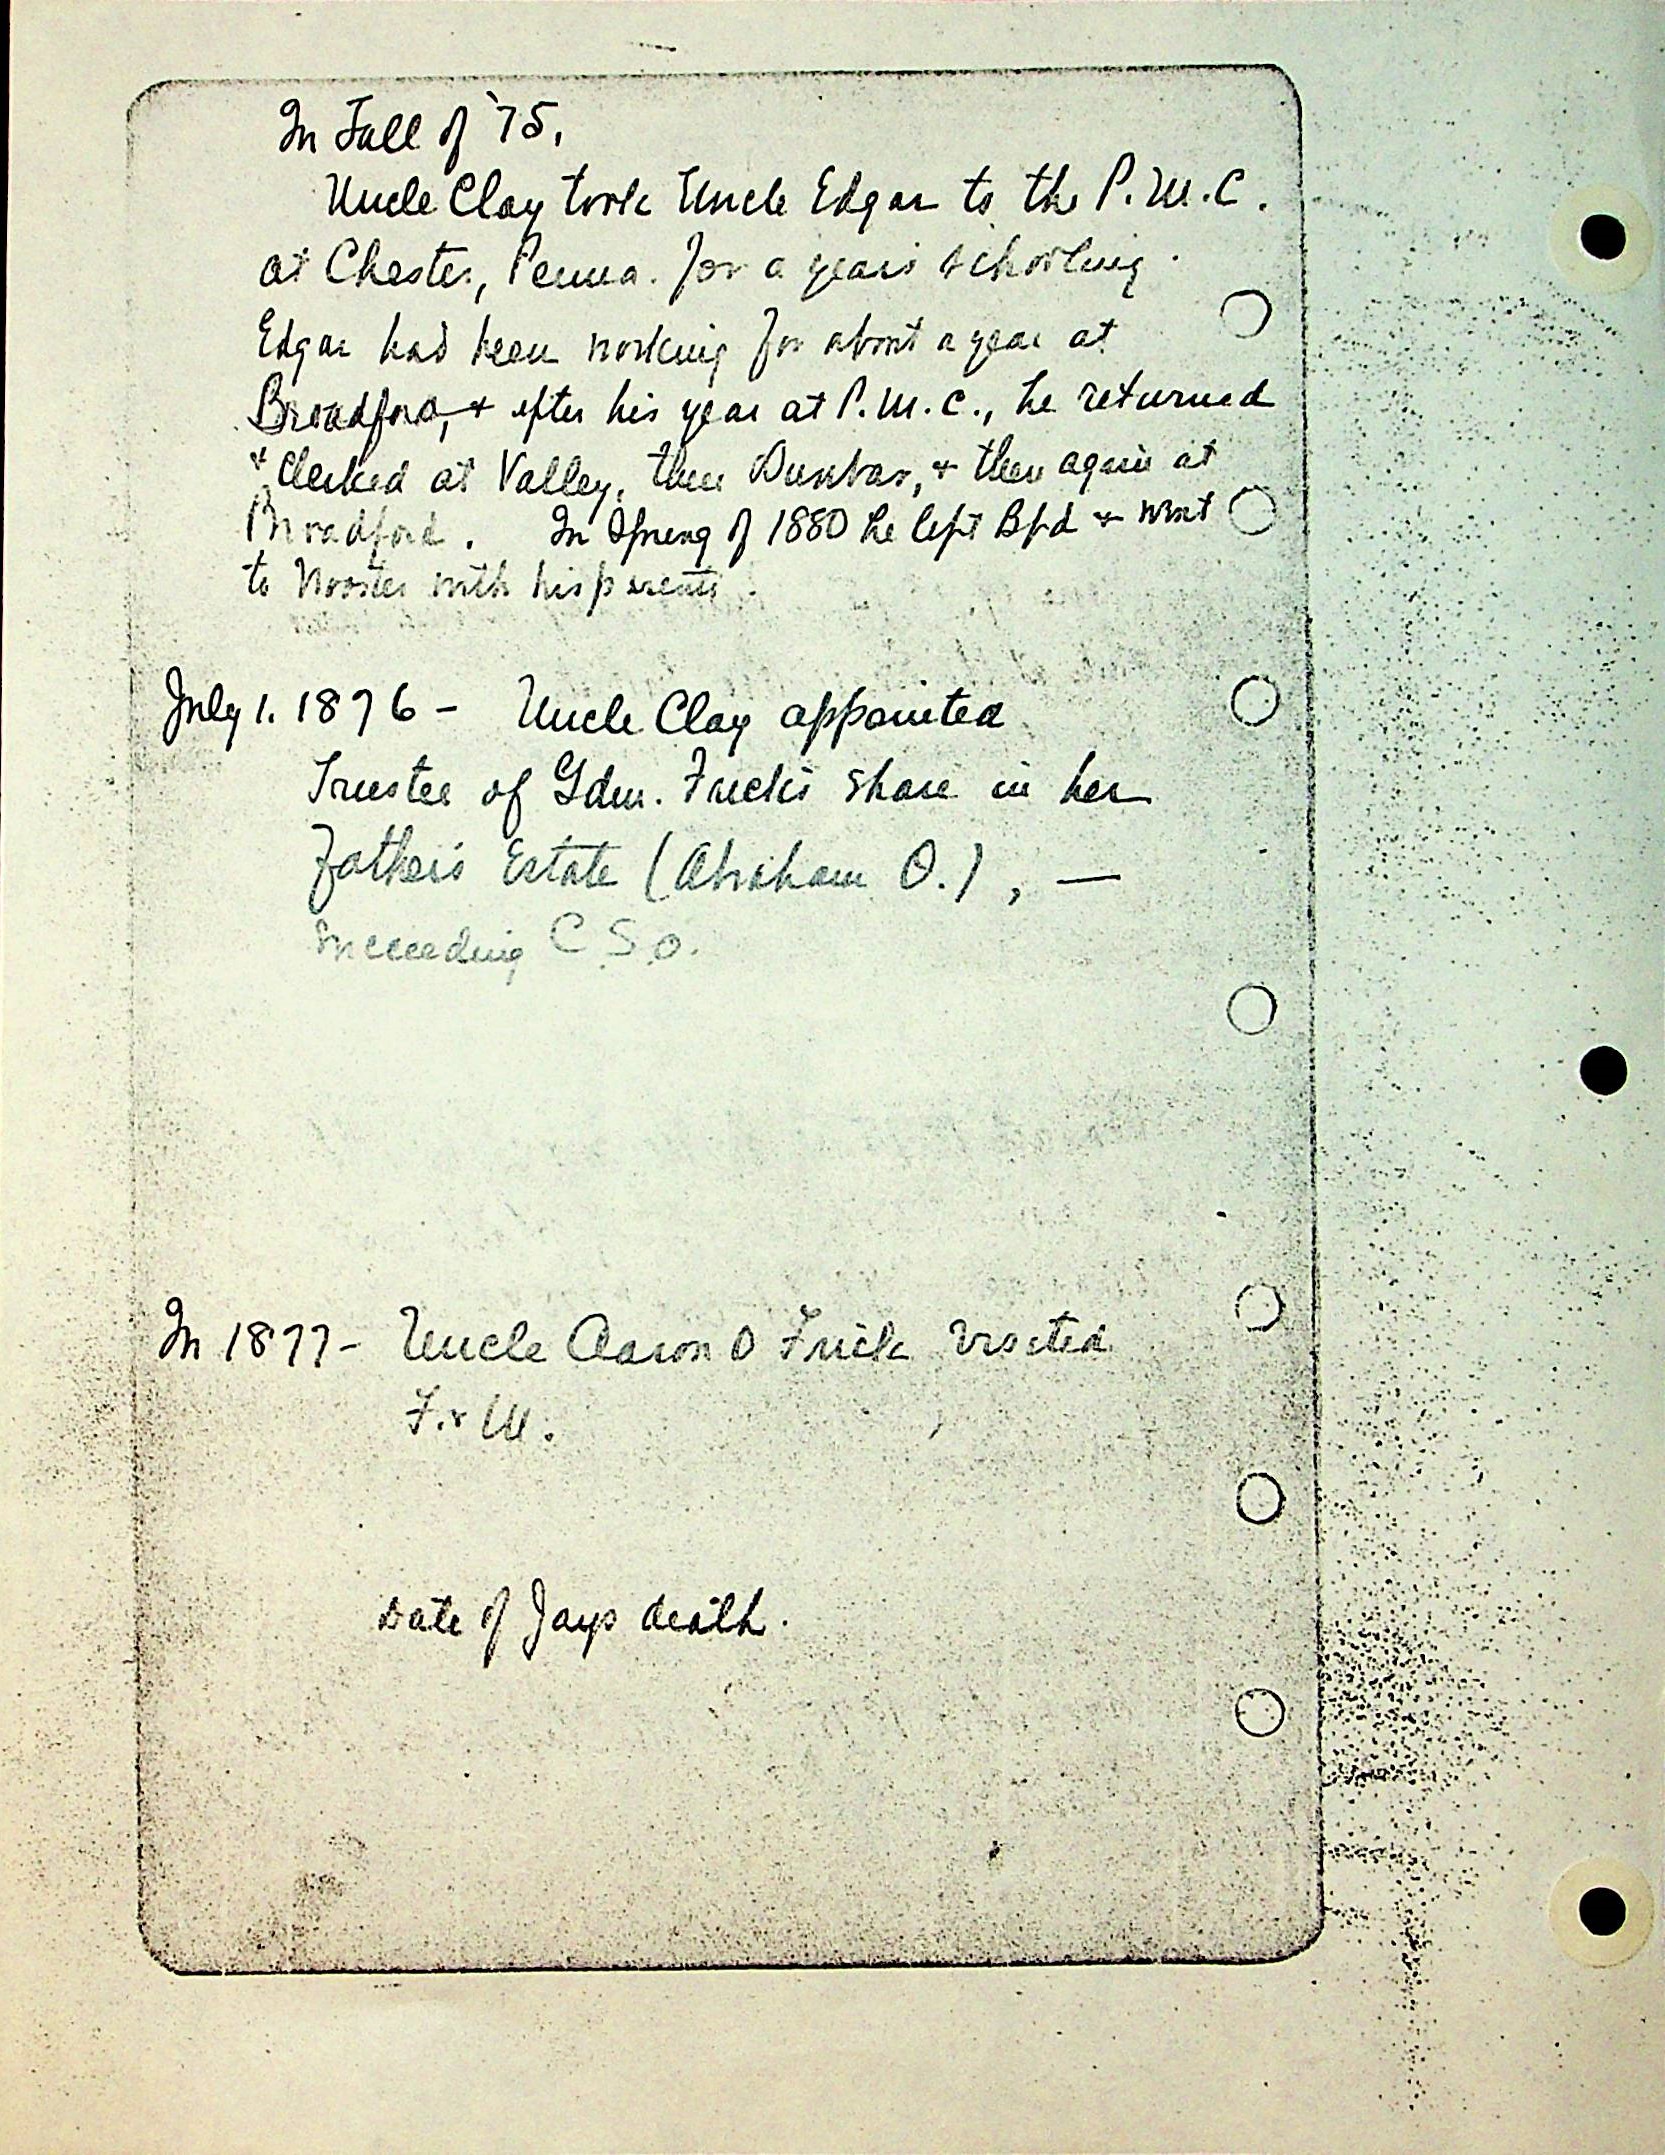 In Fall of '75,
Uncle Clay took Uncle Edgar to the P.M.C.
at Chester, Penna. for a years schooling.
Edgar had been working for about a year at
Broadford, & after his year at P.M.C., he returned
& clerked at Valley, then Dunbar, & then again at
Broadford. In Spring of 1880 he left Bfd & went
to Wooster with his parents.
July 1. 1876 - Uncle Clay appointed
Trustee of Gdm. Frick's share in her
Father's Estate (Abraham O.), —
succeeding C.S.O.
In 1877 - Uncle Aaron O Frick visited
F. & M.
Date of Jays death.